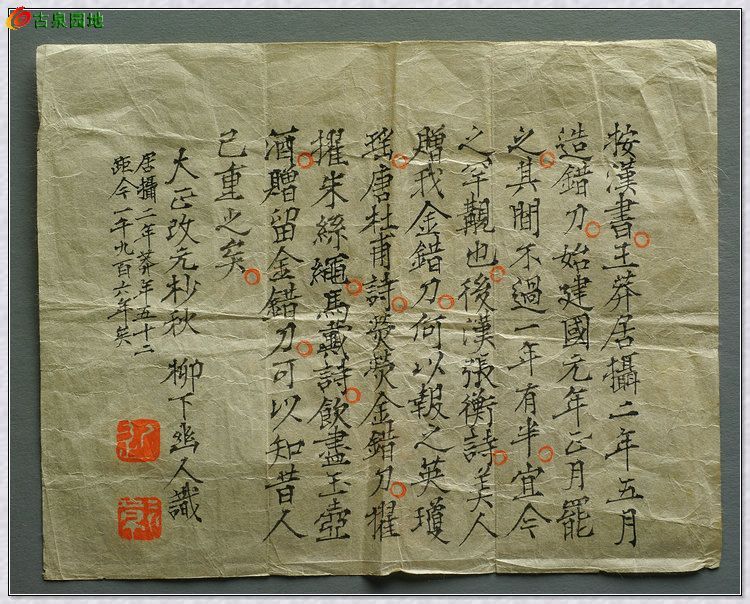 古泉园地
按漢書。王莽居攝二年五月
造錯刀。始建國元年正月罷
之。其間不過一年有半。宜今
之罕覯也。後漢張衡詩。美人
贈我金錯刀。何以報之英瓊
瑤。唐杜甫詩。熒熒金錯刀。擢
擢朱絲繩。馬戴詩。飲盡玉壺
酒。贈留金錯刀。可以知昔人
已重之矣。
大正改元杪秋 柳下幽人識
居攝二年莽年五十二
距今一千九百六年矣